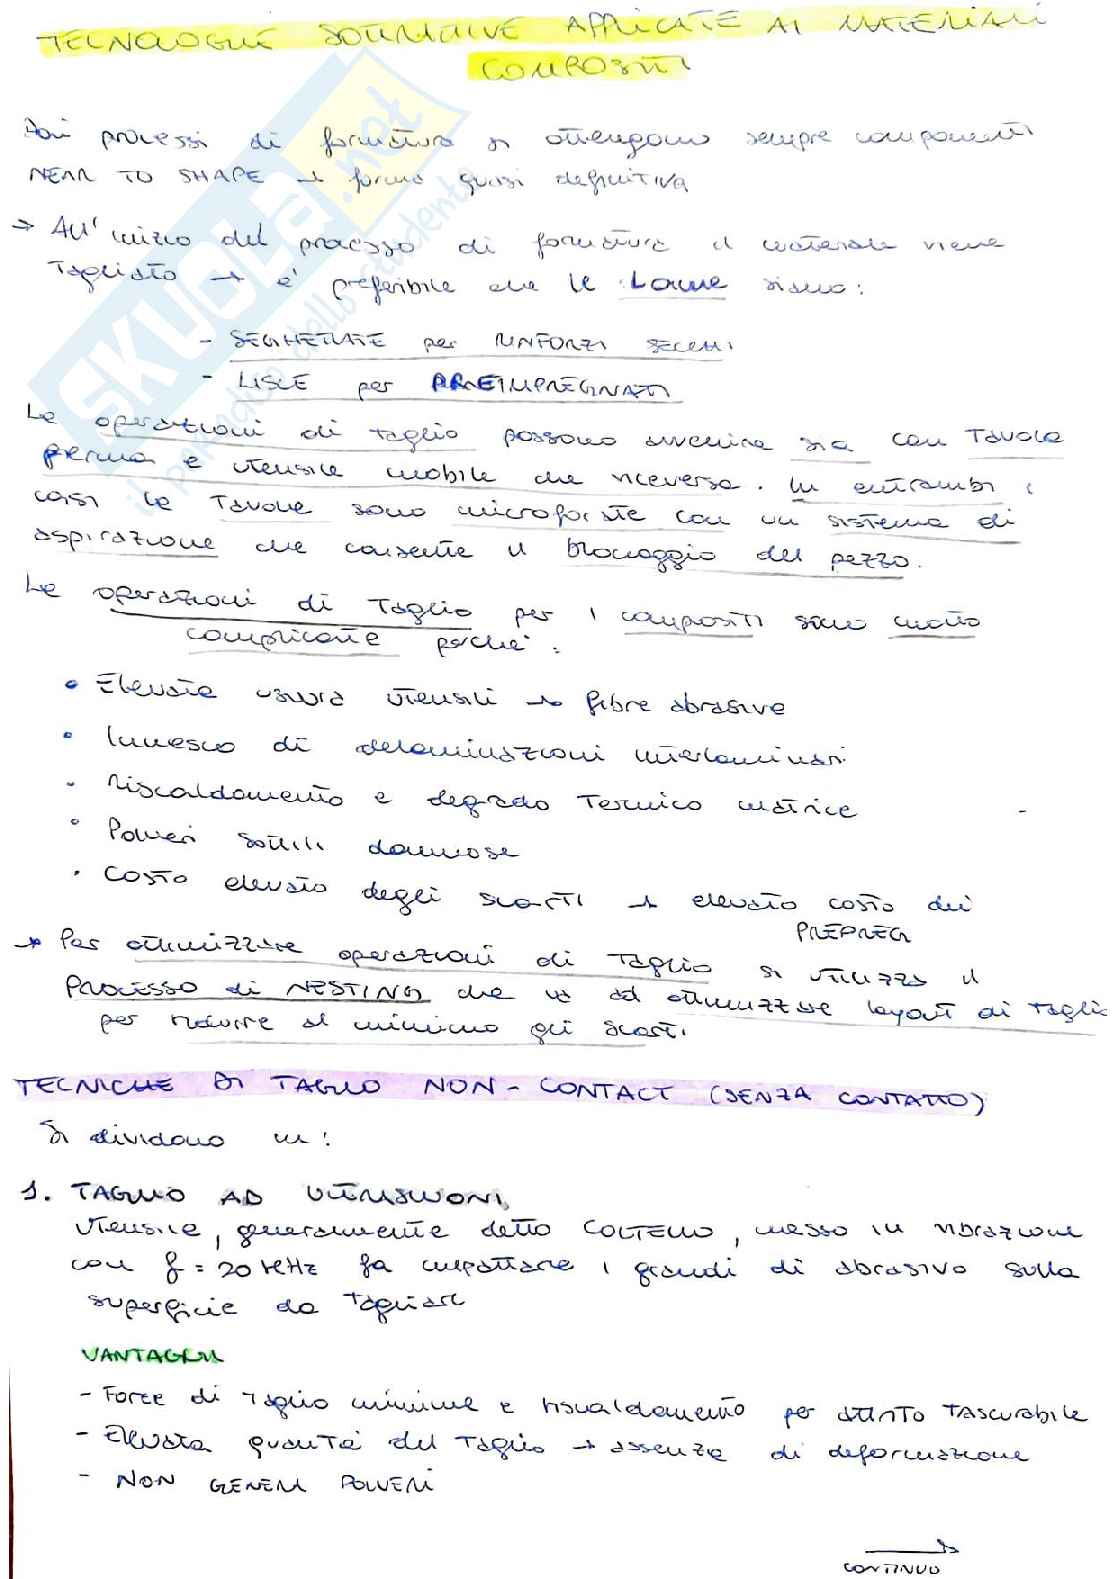 TECNOLOGIE SOTTRATTIVE APPLICATE AI MATERIALI
COMPOSITI
Dai processi di formatura si ottengono sempre componenti
NEAR TO SHAPE → forma quasi definitiva
→ All'inizio del processo di formatura il materiale viene
Tagliato → è preferibile che le Lame siano:
- SEGHETTATE per RINFORZI SECCHI
- LISCE per PREIMPREGNATI
Le operazioni di Taglio possono avvenire sia con Tavola
ferma e utensile mobile che viceversa. In entrambi i
casi le Tavole sono microforate con un sistema di
aspirazione che consente il bloccaggio del pezzo.
Le operazioni di Taglio per i compositi sono molto
complicate perché:
• Elevata usura utensili → fibre abrasive
• Innesco di delaminazioni interlaminari
• Riscaldamento e degrado Termico matrice
• Polveri sottili dannose
• Costo elevato degli scarti → elevato costo dei
PREPREG
→ Per ottimizzare operazioni di Taglio si utilizza il
PROCESSO di NESTING che va ad ottimizzare layout di Taglio
per ridurre al minimo gli scarti.
TECNICHE DI TAGLIO NON-CONTACT (SENZA CONTATTO)
Si dividono in:
1. TAGLIO AD ULTRASUONI
Utensile, generalmente detto COLTELLO, messo in vibrazione
con f = 20 kHz fa impattare i grandi di abrasivo sulla
superficie da Tagliare
VANTAGGI
- Forze di Taglio minime e riscaldamento per attrito TRASCURABILE
- Elevata qualità del Taglio → assenza di deformazione
- NON GENERA POLVERI
CONTINUO
SKUOLA.net
il paradiso dello studente